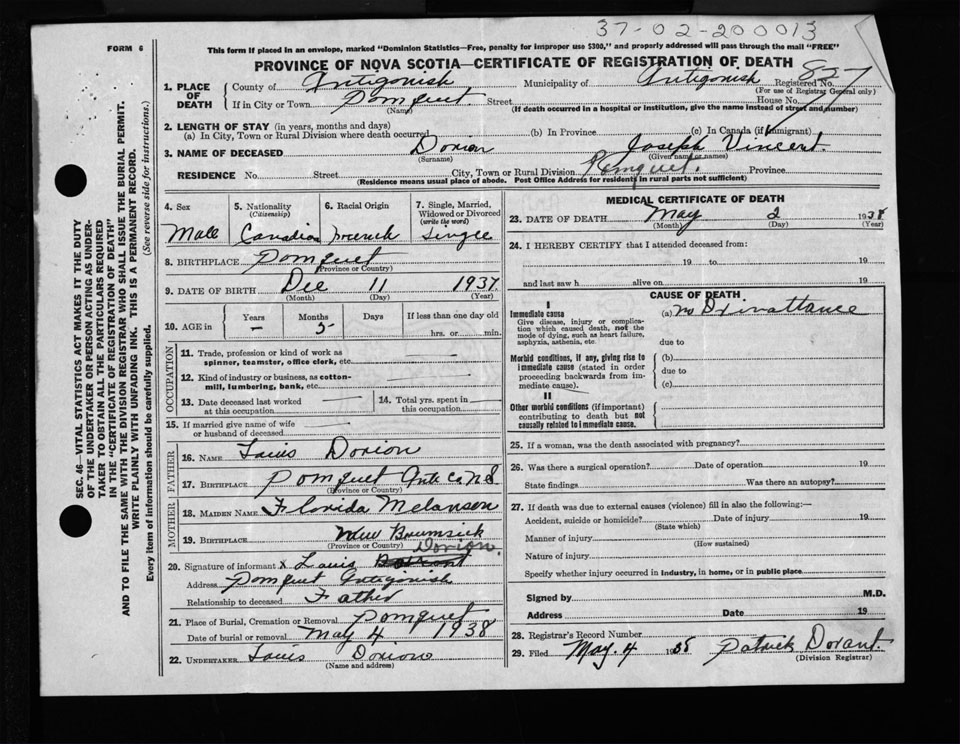 37-02-200013
FORM 6
This form if placed in an envelope, marked "Dominion Statistics—Free, penalty for improper use $300," and properly addressed will pass through the mail "FREE"
PROVINCE OF NOVA SCOTIA—CERTIFICATE OF REGISTRATION OF DEATH
1. PLACE OF DEATH County of Antigonish Municipality of Antigonish Registered No. 827
(For use of Registrar General only)
If in City or Town Pomquet Street House No.
(Name) (If death occurred in a hospital or institution, give the name instead of street and number)
2. LENGTH OF STAY (in years, months and days)
(a) In City, Town or Rural Division where death occurred (b) In Province (c) In Canada (if Immigrant)
3. NAME OF DECEASED Dorion Joseph Vincent.
(Surname) (Given name or names)
RESIDENCE No. Street City, Town or Rural Division Pomquet. Province
(Residence means usual place of abode. Post Office Address for residents in rural parts not sufficient)
4. Sex 5. Nationality (Citizenship) 6. Racial Origin 7. Single, Married, Widowed or Divorced (write the word)
Male Canadian French Single
8. BIRTHPLACE Pomquet
(Province or Country)
9. DATE OF BIRTH Dec 11 1937
(Month) (Day) (Year)
10. AGE in Years Months Days If less than one day old
— 5 hrs. or min.
OCCUPATION
11. Trade, profession or kind of work as spinner, teamster, office clerk, etc.
12. Kind of industry or business, as cotton-mill, lumbering, bank, etc.
13. Date deceased last worked at this occupation 14. Total yrs. spent in this occupation
15. If married give name of wife or husband of deceased
FATHER
16. NAME Louis Dorion
17. BIRTHPLACE Pomquet Ant. Co N S.
(Province or Country)
MOTHER
18. MAIDEN NAME Florida Melanson
19. BIRTHPLACE New Brunsick
(Province or Country)
Dorion.
20. Signature of informant X Louis
Address Pomquet Antigonish
Relationship to deceased Father
21. Place of Burial, Cremation or Removal Pomquet
Date of burial or removal May 4 1938
22. UNDERTAKER Louis Dorion
(Name and address)
MEDICAL CERTIFICATE OF DEATH
23. DATE OF DEATH May 2 1938
(Month) (Day) (Year)
24. I HEREBY CERTIFY that I attended deceased from:
19 to 19
and last saw h alive on 19
CAUSE OF DEATH
I
Immediate cause
Give disease, injury or complication which caused death, not the mode of dying, such as heart failure, asphyxia, asthenia, etc.
(a) no Dr in attance
due to
Morbid conditions, if any, giving rise to immediate cause (stated in order proceeding backwards from immediate cause).
(b)
due to
(c)
II
Other morbid conditions (if important) contributing to death but not causally related to immediate cause.
25. If a woman, was the death associated with pregnancy?
26. Was there a surgical operation? Date of operation 19
State findings Was there an autopsy?
27. If death was due to external causes (violence) fill in also the following:—
Accident, suicide or homicide? Date of injury 19
(State which)
Manner of injury
(How sustained)
Nature of injury
Specify whether injury occurred in industry, in home, or in public place
Signed by M.D.
Address Date 19
28. Registrar's Record Number
29. Filed May. 4 1938 Patrick Dorant.
(Division Registrar)
SEC. 46—VITAL STATISTICS ACT MAKES IT THE DUTY
OF THE UNDERTAKER OR PERSON ACTING AS UNDER-
TAKER TO OBTAIN ALL THE PARTICULARS REQUIRED
IN THE "CERTIFICATE OF REGISTRATION OF DEATH"
AND TO FILE THE SAME WITH THE DIVISION REGISTRAR WHO SHALL ISSUE THE BURIAL PERMIT.
WRITE PLAINLY WITH UNFADING INK. THIS IS A PERMANENT RECORD.
Every item of information should be carefully supplied. (See reverse side for instructions.)